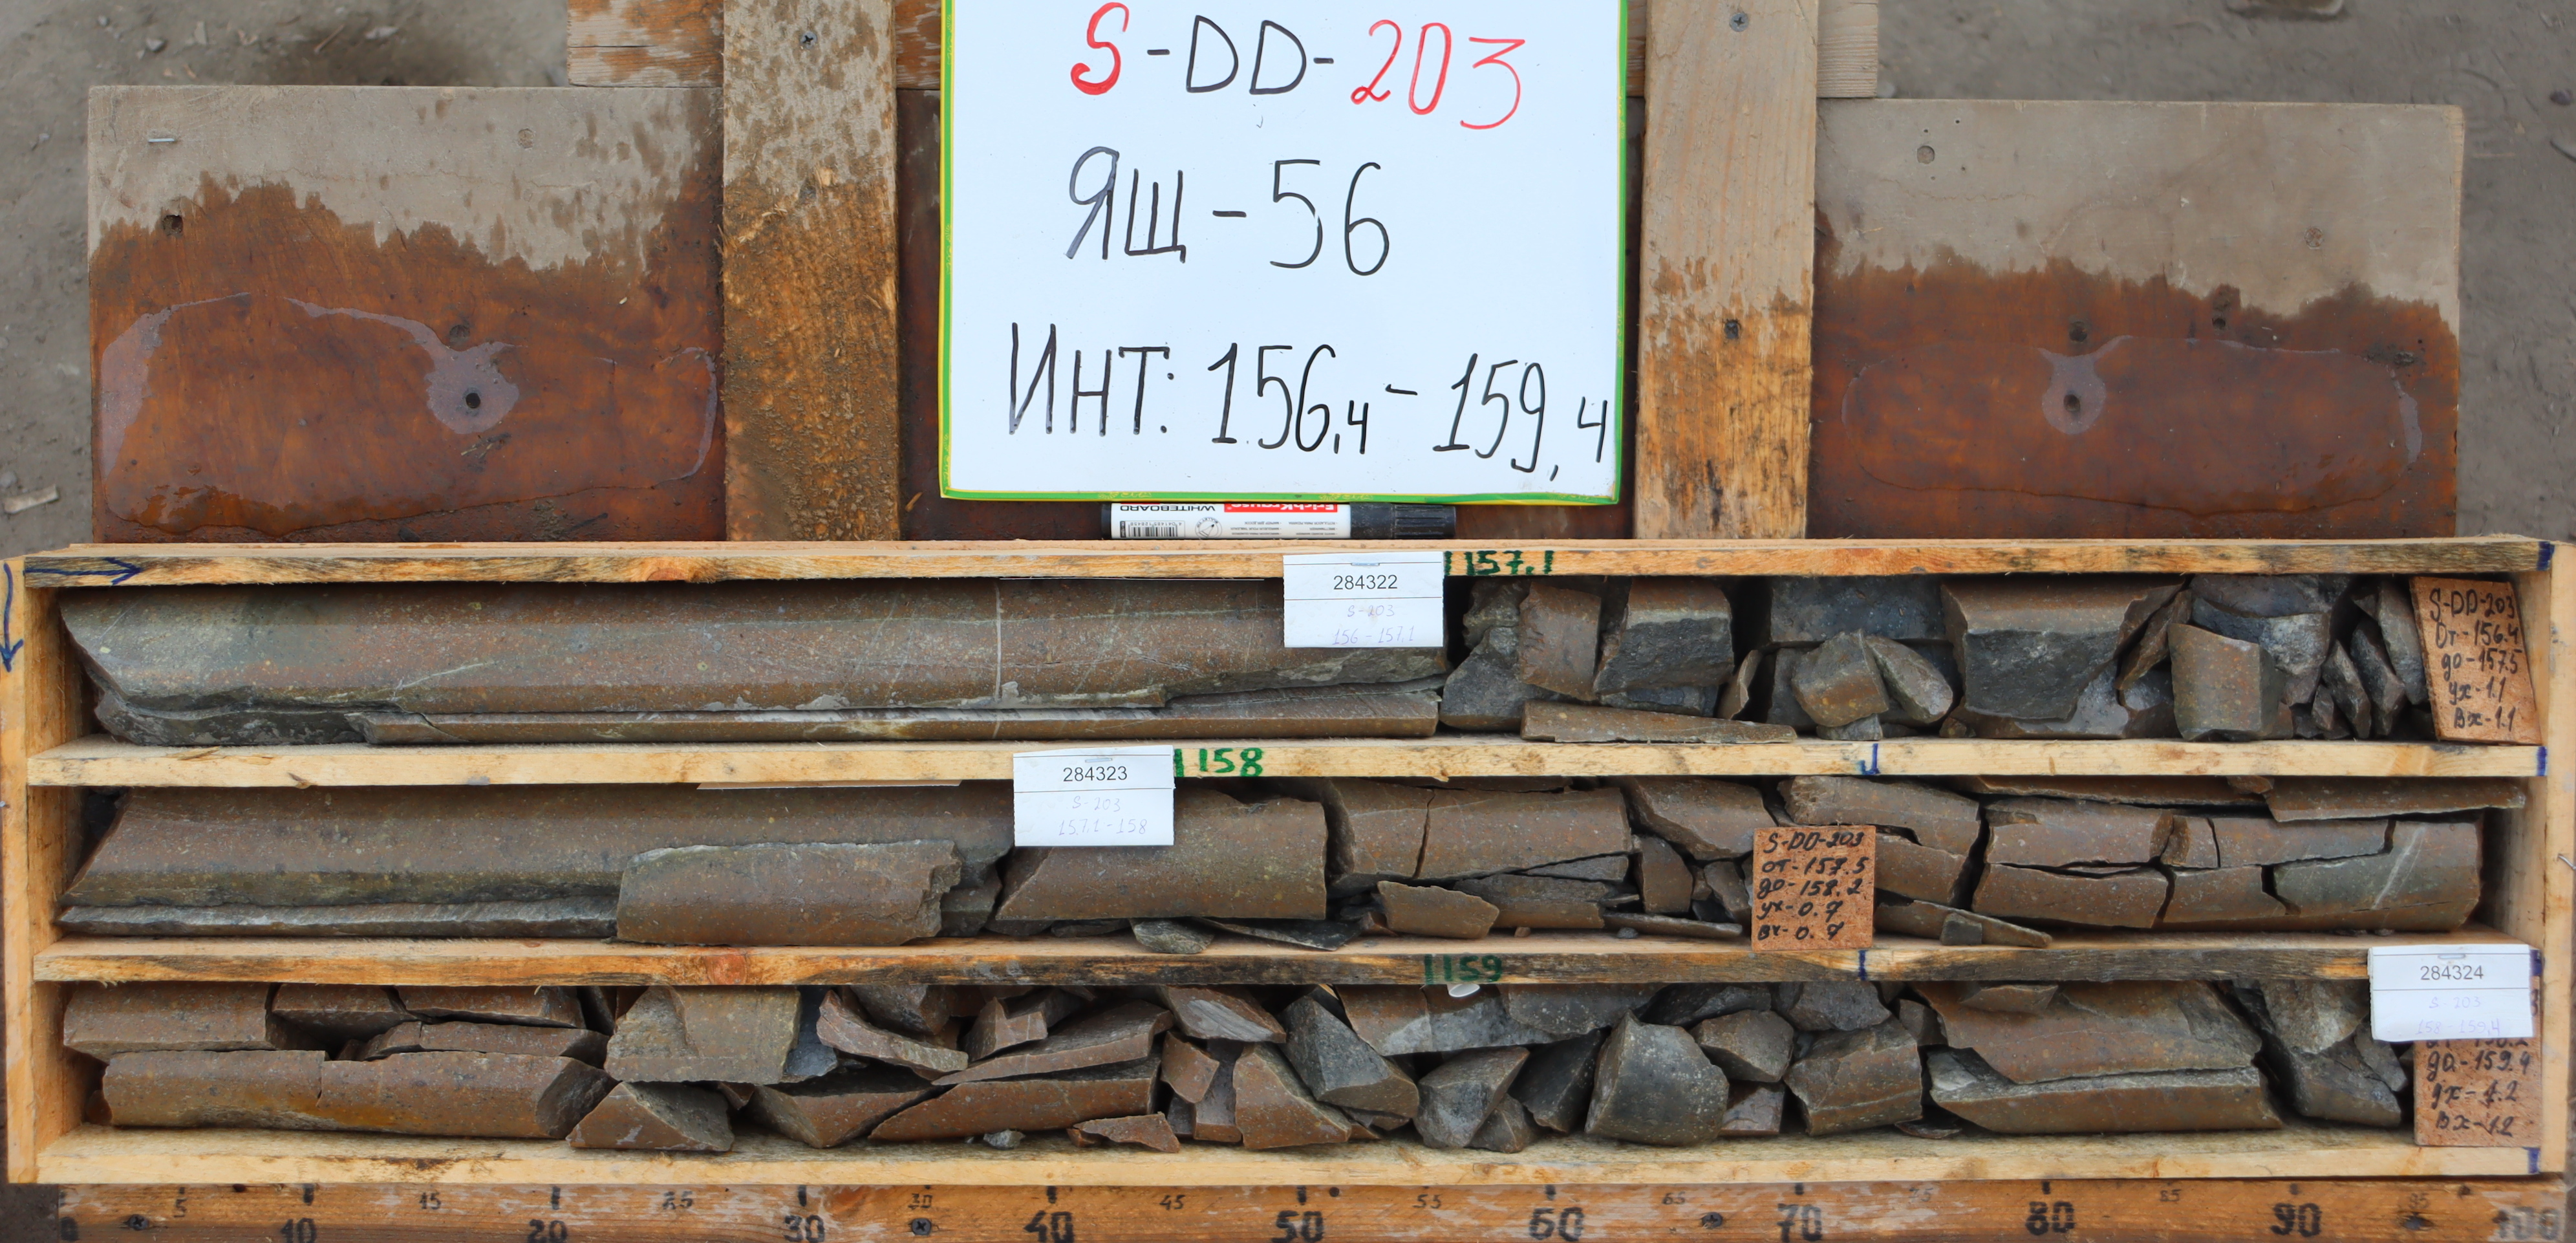 S-DD-203
ЯЩ-56
ИНТ: 156,4 - 159,4
WHITEBOARD ErichKrause
284322
S-203
156-157,1
157.1
S-DD-203
От-156.4
до-157.5
ух-1.1
Вх-1.1
284323
S-203
157,1-158
158
S-DD-203
от-157.5
до-158.2
ух-0.7
вх-0.7
159
284324
S 203
158-159,4
до-159.4
ух-1.2
Вх-1.2
5 15 25 30 45 55 65 75 85 95
0 10 20 30 40 50 60 70 80 90 100